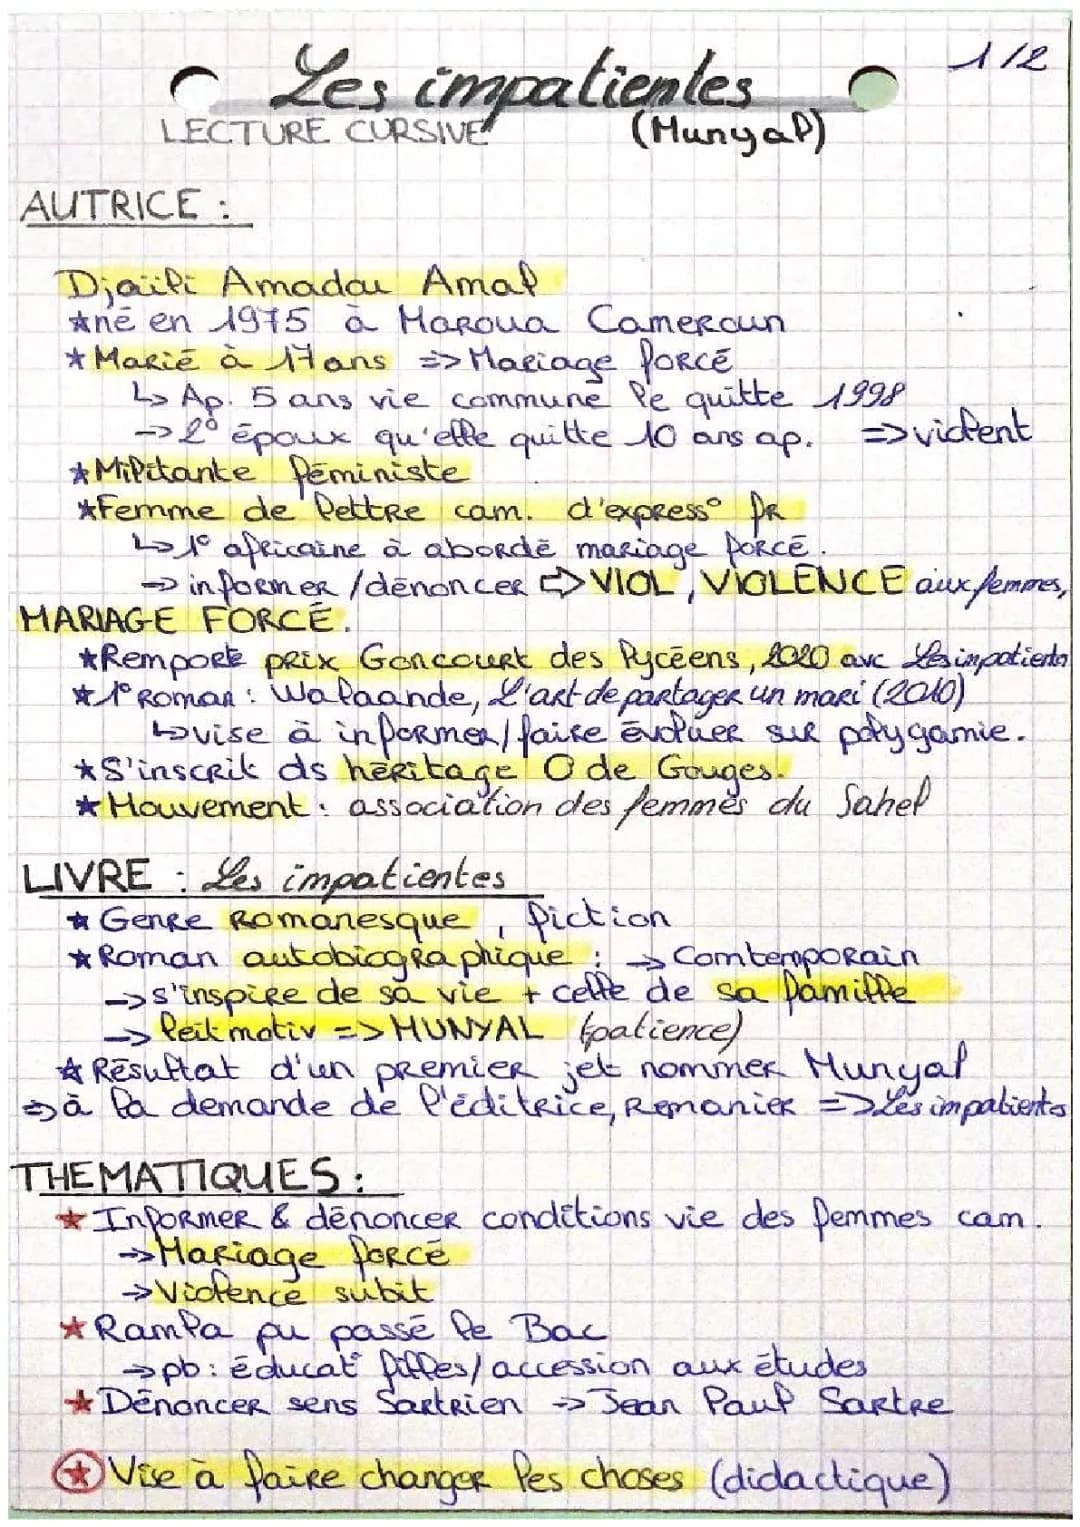 1/2
Les impatientes
LECTURE CURSIVE (Munyal)
AUTRICE :
Djaïli Amadou Amal
*né en 1975 à Maroua Cameroun
*Marié à 17 ans => Mariage forcé
↳ Ap. 5 ans vie commune le quitte 1998
→ 2° époux qu'elle quitte 10 ans ap. => violent
*Militante féministe
*Femme de lettre cam. d'express° fr
↳ 1° africaine à abordé mariage forcé.
→ informer /dénoncer ⇨ VIOL, VIOLENCE aux femmes,
MARIAGE FORCÉ.
*Remporte prix Goncourt des lycéens, 2020 avc Les impatientes
*1° Roman : Walaande, L'art de partager un mari (2010)
↳ vise à informer/faire évoluer sur polygamie.
*S'inscrit ds héritage O de Gouges.
*Mouvement : association des femmes du Sahel
LIVRE : Les impatientes
*Genre Romanesque, fiction
*Roman autobiographique : → Comtemporain
→ s'inspire de sa vie + celle de sa famille
→ leit motiv => MUNYAL (patience)
*Résultat d'un premier jet nommer Munyal
⇒ à la demande de l'éditrice, Remanier => Les impatientes
THEMATIQUES :
*Informer & dénoncer conditions vie des femmes cam.
→ Mariage forcé
→ Violence subit
*Ramla pu passé le Bac
→ pb : éducat° filles/ accession aux études
*Dénoncer sens Sartrien → Jean Paul Sartre
*Vise à faire changer les choses (didactique)